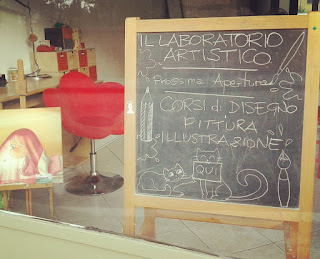 IL LABORATORIO
ARTISTICO
Prossima Apertura
CORSI di DISEGNO
PITTURA
ILLUSTRAZIONE
QUI